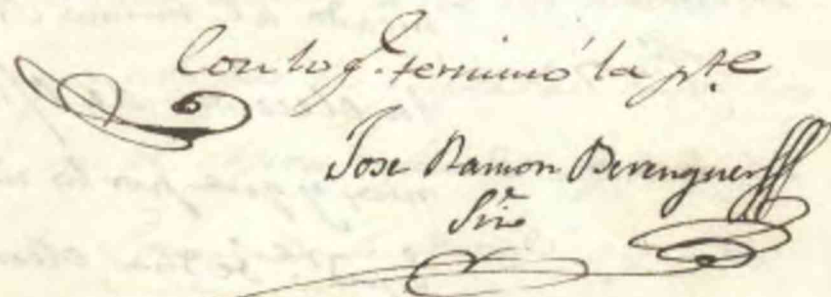 Con lo q.e terminó la pte
Jose Ramon Berenguer
Srio